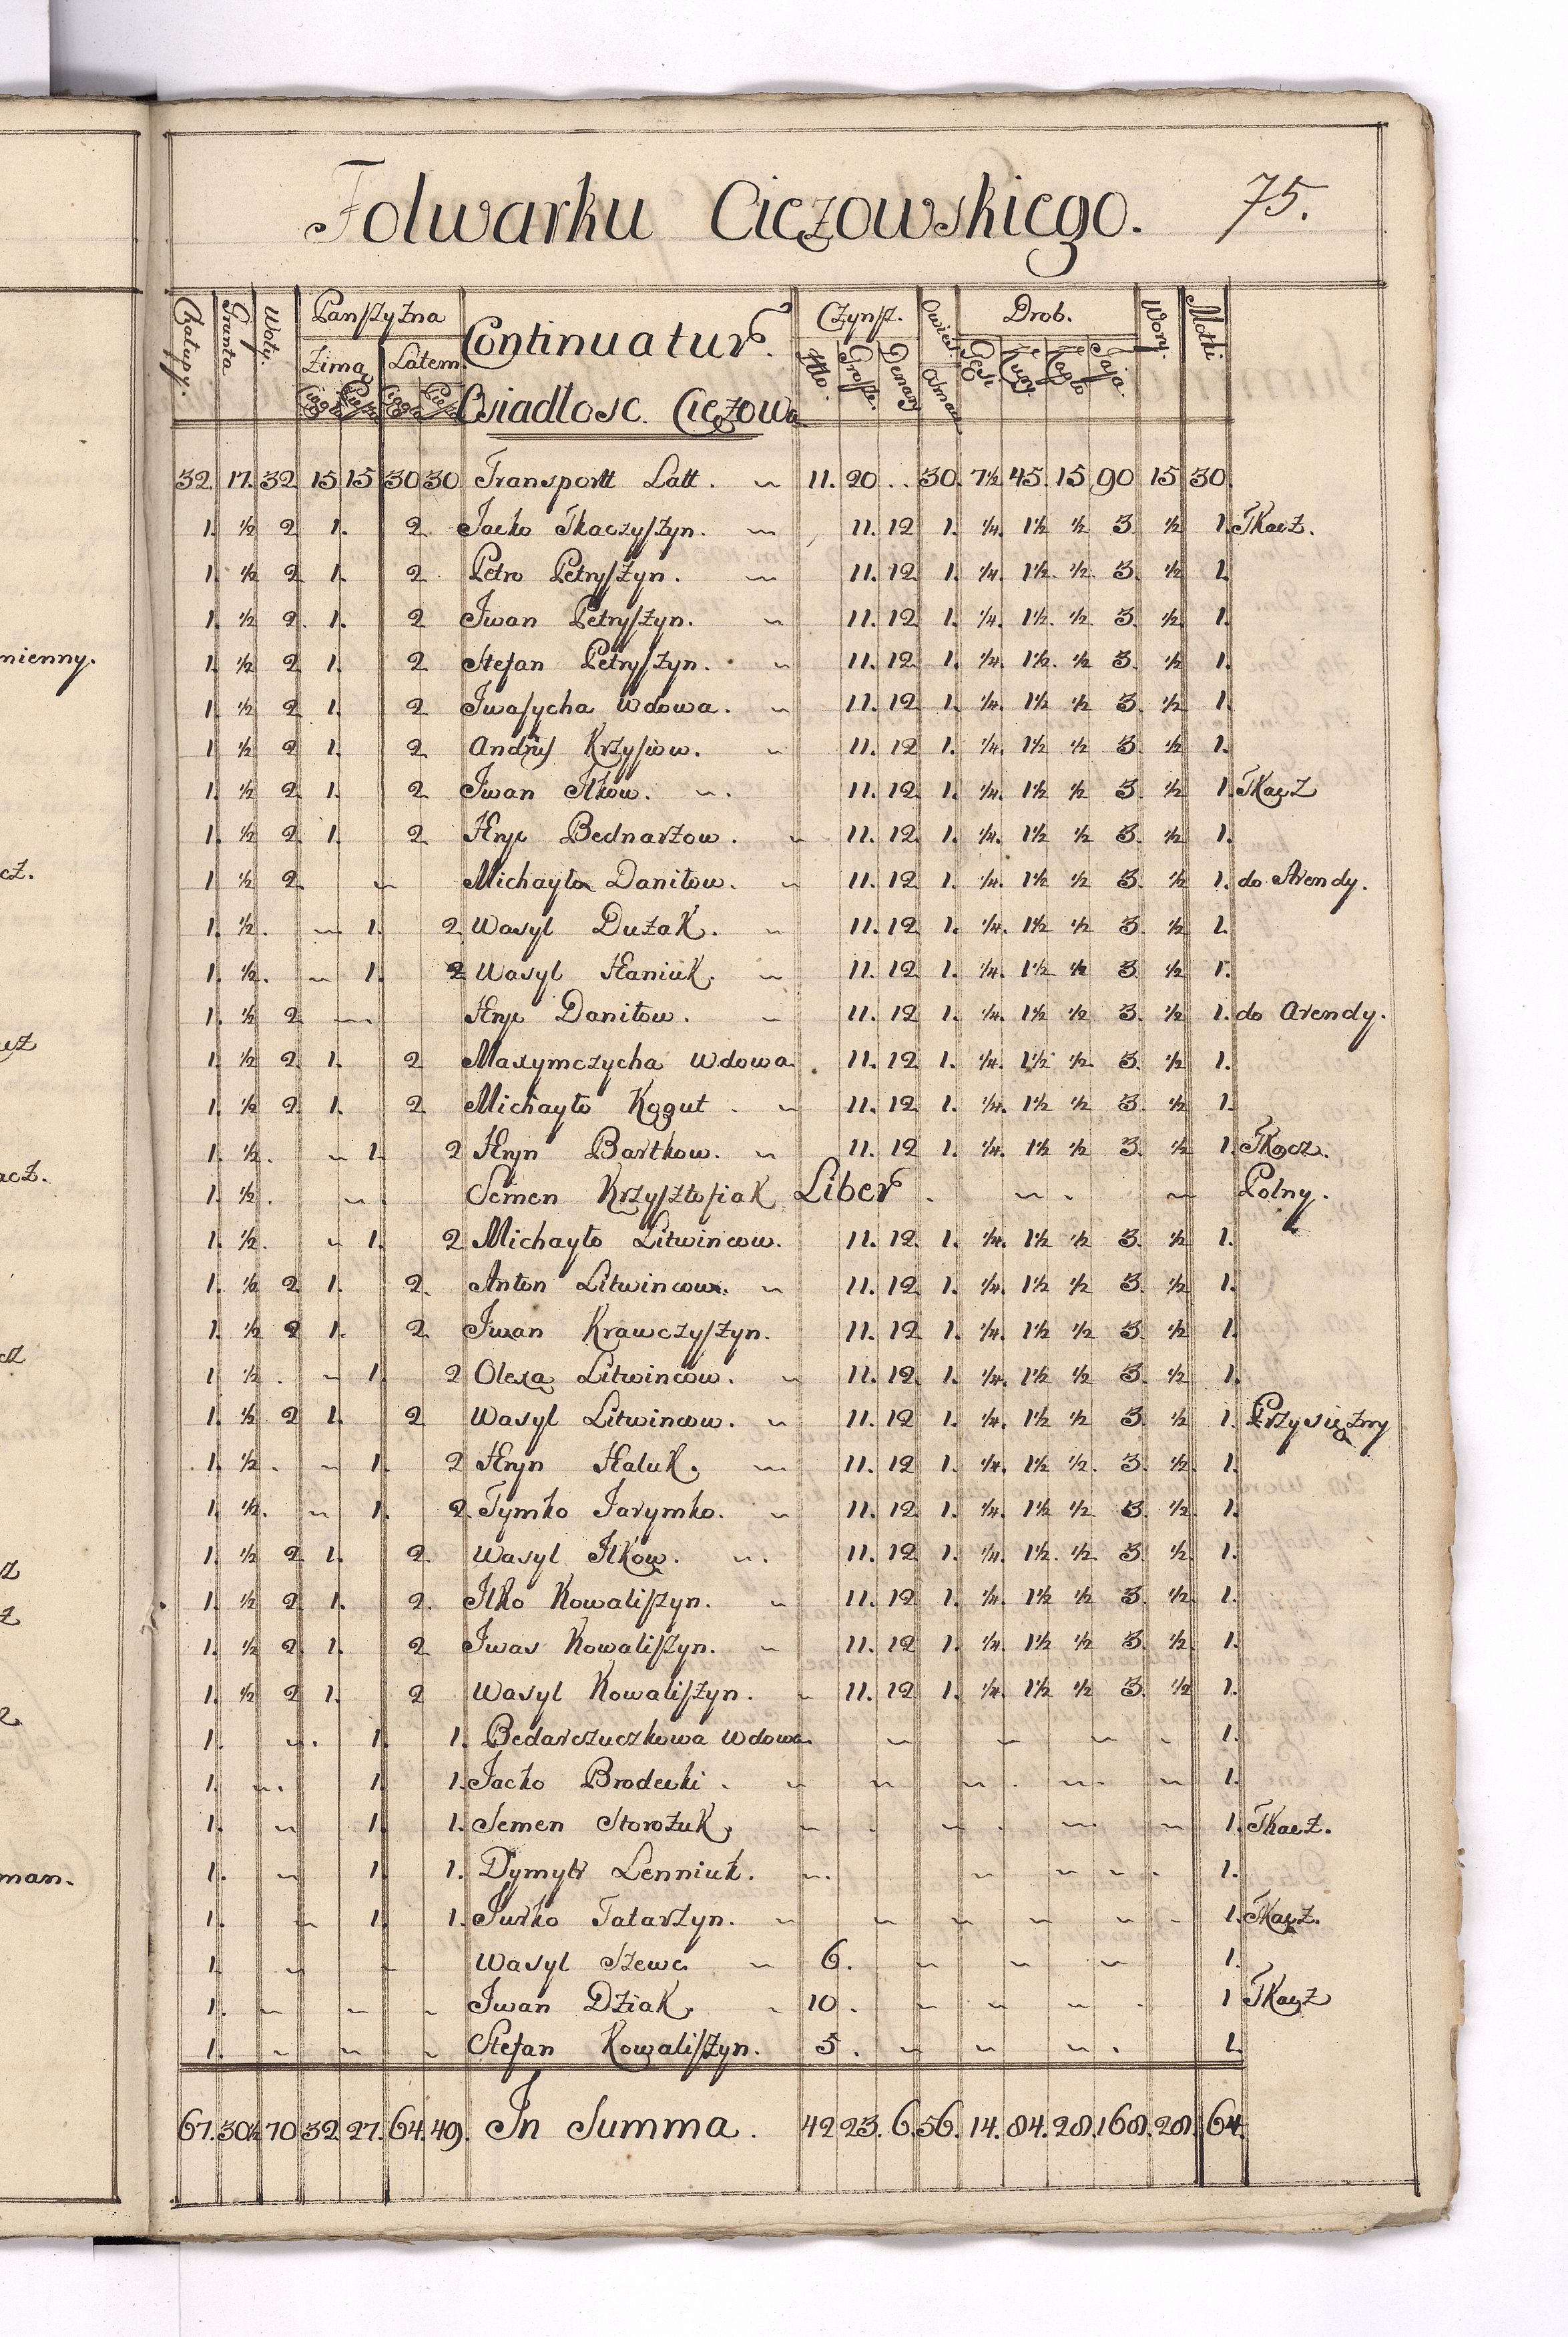 Folwarku Ciężowskiego. 75.
Chałupy. Grunta Woły. Panszyzna Continuatur. Czynsz. Owies. Drob. Wory. Motki
Zimą Latem Złto. Grosze. Denary Gęsi Kury Kapło Jaja.
Ciągłe Piesze Ciągłe Piesze Osiadłosc. Ciężowa
32. 17. 32 15 15 30 30 Transportt Latt. 11. 20 . . 30. 7½ 45. 15. 90 15 30.
1. ½ 2 1. 2. Jacko Tkaczyszyn. 11. 12 1. ¼. 1½ ½ 3. ½ 1. Tkacz.
1. ½ 2 1. 2. Petro Petryszyn. 11. 12. 1. ¼. 1½. ½. 3. ½ 1.
1. ½ 2. 1. 2 Iwan Petryszyn. 11. 12. 1. ¼. 1½. ½. 3. ½ 1.
mienny.
1. ½ 2 1. 2 Stefan Petryszyn. 11. 12. 1. ¼. 1½. ½ 3. ½ 1.
1. ½ 2 1. 2 Iwasycha Wdowa. 11. 12 1. ¼. 1½ ½ 3. ½ 1.
1 ½ 2 1. 2 Andrij Krzysiow. 11. 12 1. ¼. 1½ ½ 3. ½ 1.
1. ½ 2. 1. 2 Iwan Ilkow. 11. 12. 1. ¼. 1½ ½ 3. ½ 1. Tkacz
1. ½ 2 1. 2. Hryc Bednarzow. 11. 12 1. ¼. 1½ ½ 3. ½ 1.
cz.
1 ½ 2. Michayło Daniłow. 11. 12. 1. ¼. 1½ ½ 3. ½ 1. do Arendy.
1. ½. 1. 2 Wasyl Duzak. 11. 12 1. ¼. 1½ ½ 3. ½ 1.
1. ½. 1. 2 Wasyl Haniuk. 11. 12 1. ¼. 1½ ½ 3. ½ 1.
1. ½ 2 Hryc Daniłow. 11. 12 1. ¼. 1½ ½ 3. ½ 1. do Arendy.
1. ½ 2 1. 2 Maxymczycha Wdowa. 11. 12 1. ¼. 1½ ½. 3. ½ 1.
1. ½ 2. 1. 2 Michayło Kogut. 11. 12. 1. ¼. 1½ ½ 3. ½ 1.
1. ½. 1. 2 Hryn Bartkow. 11. 12 1. ¼. 1½ ½ 3. ½ 1. Tkacz.
acz.
1. ½. Semen Krzysztofiak Liber. Polny.
1. ½. 1. 2 Michayło Litwincow. 11. 12. 1. ¼. 1½ ½ 3. ½ 1.
1. ½ 2 1. 2. Anton Litwincow. 11. 12. 1. ¼. 1½ ½ 3. ½ 1.
1. ½ 2 1. 2. Iwan Krawczyszyn. 11. 12. 1. ¼. 1½ ½ 3. ½ 1.
1 ½. 1. 2 Olexa Litwincow. 11. 12. 1. ¼. 1½ ½ 3. ½ 1.
1. ½ 2 1. 2 Wasyl Litwincow. 11. 12 1. ¼. 1½ ½ 3. ½ 1. Przysiężny
1. ½. 1. 2 Hryn Haluk. 11. 12 1. ¼. 1½ ½. 3. ½. 1.
1. ½. 1. 2. Tymko Jarymko. 11. 12. 1. ¼. 1½ ½ 3. ½. 1.
1. ½ 2 1. 2. Wasyl Ilkow. 11. 12. 1. ¼. 1½. ½. 3. ½. 1.
1. ½ 2. 1. 2. Ilko Kowaliszyn. 11. 12 1. ¼. 1½ ½ 3. ½. 1.
1. ½ 2. 1. 2 Iwas Kowaliszyn. 11. 12 1. ¼. 1½ ½ 3. ½. 1.
1. ½ 2 1. 2 Wasyl Kowaliszyn. 11. 12 1. ¼. 1½ ½ 3. ½ 1.
1. 1. 1. Bedarczuczkowa Wdowa. 1.
1. 1. 1. Jacko Brodecki. 1.
1. 1. 1. Semen Storozuk. 1. Tkacz.
1. 1. 1. Dymytr Lenniuk. 1.
man.
1. 1. 1. Jurko Tatarzyn. 1. Tkacz.
1. Wasyl Szewc 6. 1.
1. Iwan Dziak. 10. 1 Tkacz
1. Stefan Kowaliszyn. 5. 1.
67. 30½ 70 32 27. 64. 49. In Summa. 42 23. 6. 56. 14. 84. 28. 168. 28. 64.